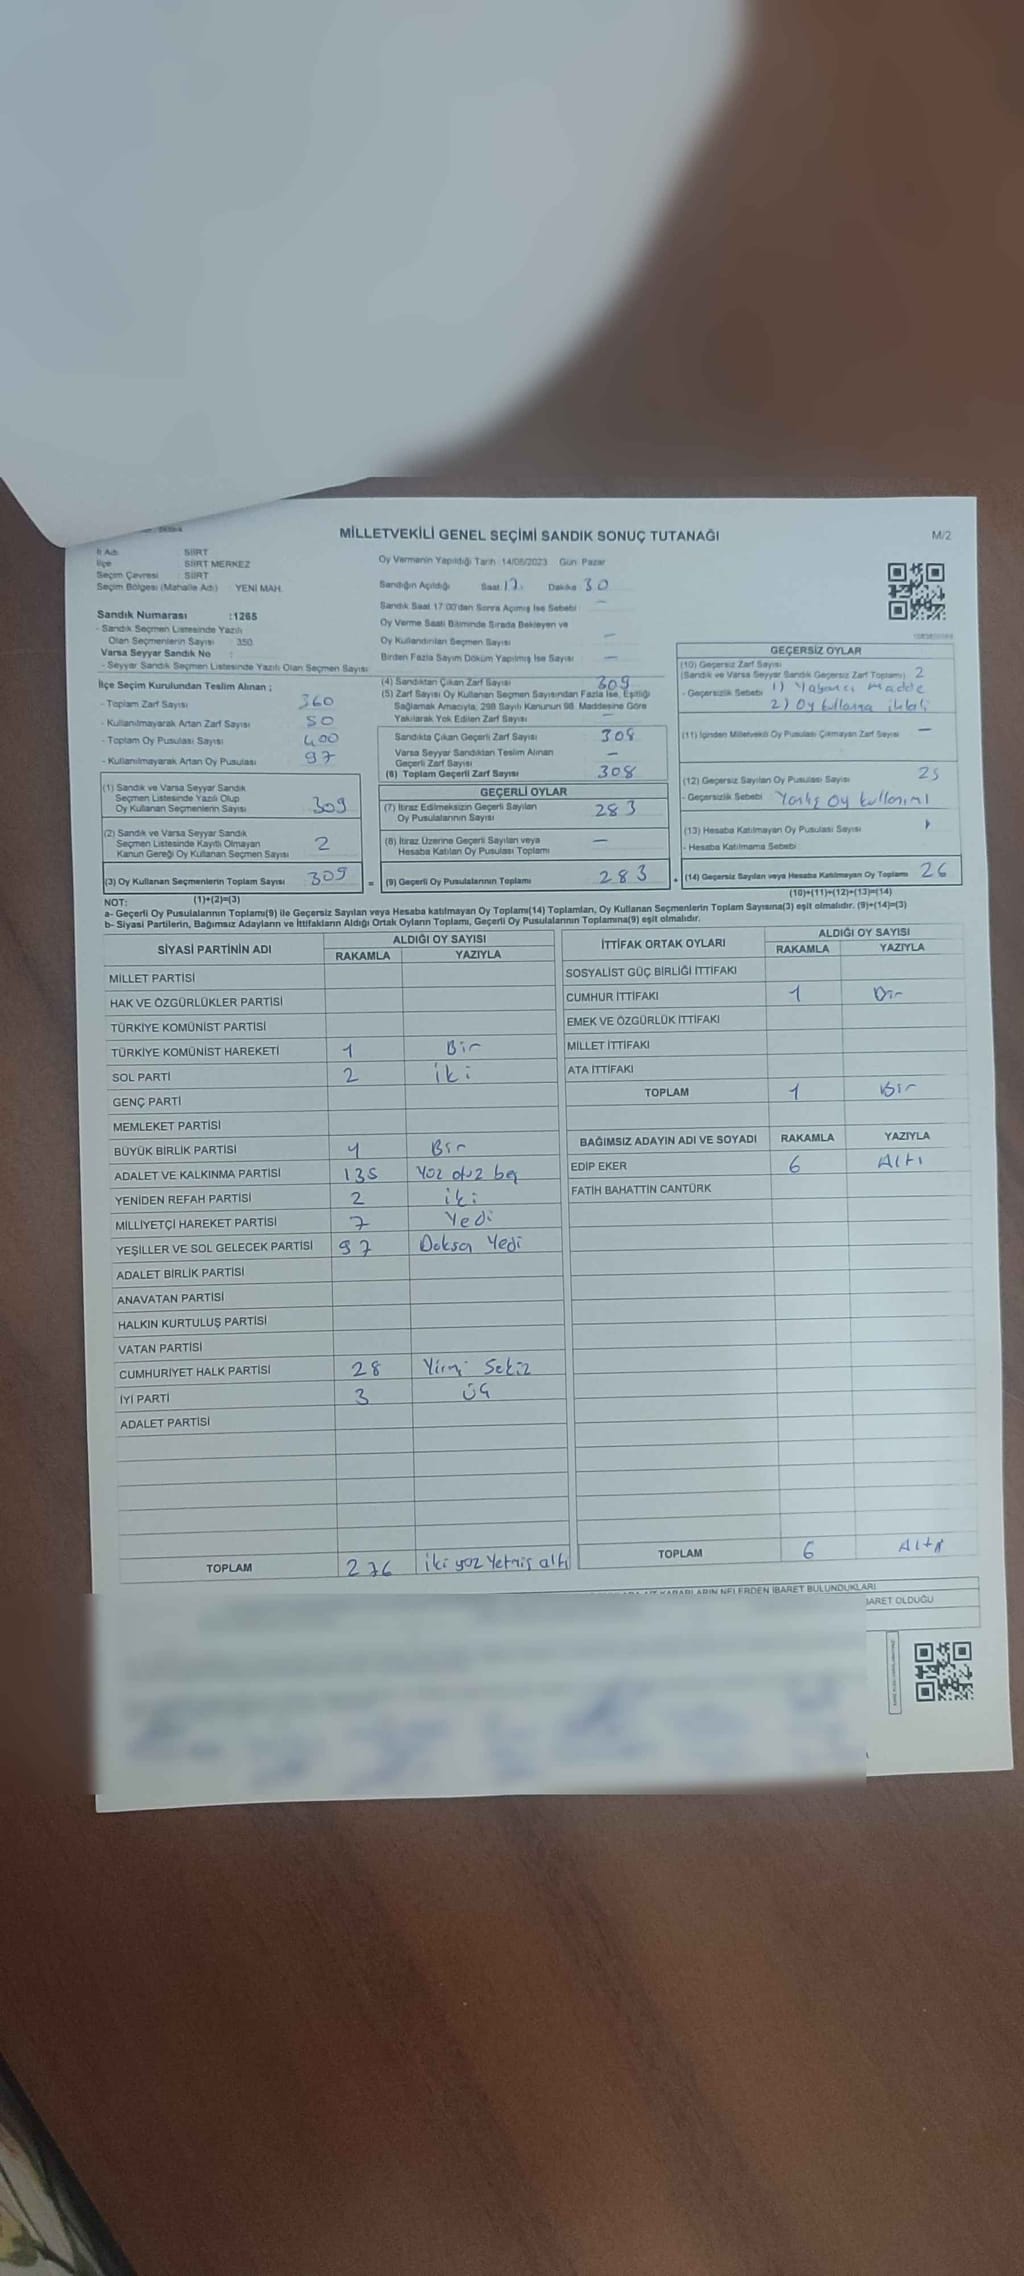 MİLLETVEKİLİ GENEL SEÇİMİ SANDIK SONUÇ TUTANAĞI
M/2
İl Adı SİİRT
İlçe SİİRT MERKEZ
Seçim Çevresi : SİİRT
Seçim Bölgesi (Mahalle Adı) : YENİ MAH.
Sandık Numarası :1265
- Sandık Seçmen Listesinde Yazılı
Olan Seçmenlerin Sayısı : 350
Varsa Seyyar Sandık No :
- Seyyar Sandık Seçmen Listesinde Yazılı Olan Seçmen Sayısı
Oy Vermenin Yapıldığı Tarih :14/05/2023 Gün: Pazar
Sandığın Açıldığı Saat 17: Dakika 30
Sandık Saat 17:00'dan Sonra Açılmış İse Sebebi —
Oy Verme Saati Bitiminde Sırada Bekleyen ve
Oy Kullandırılan Seçmen Sayısı —
Birden Fazla Sayım Döküm Yapılmış İse Sayısı —
İlçe Seçim Kurulundan Teslim Alınan ;
- Toplam Zarf Sayısı 360
- Kullanılmayarak Artan Zarf Sayısı 50
- Toplam Oy Pusulası Sayısı 400
- Kullanılmayarak Artan Oy Pusulası 97
(1) Sandık ve Varsa Seyyar Sandık
Seçmen Listesinde Yazılı Olup
Oy Kullanan Seçmenlerin Sayısı 309
(2) Sandık ve Varsa Seyyar Sandık
Seçmen Listesinde Kayıtlı Olmayan
Kanun Gereği Oy Kullanan Seçmen Sayısı 2
(3) Oy Kullanan Seçmenlerin Toplam Sayısı 309
(4) Sandıktan Çıkan Zarf Sayısı 309
(5) Zarf Sayısı Oy Kullanan Seçmen Sayısından Fazla İse, Eşitliği
Sağlamak Amacıyla, 298 Sayılı Kanunun 98. Maddesine Göre
Yakılarak Yok Edilen Zarf Sayısı
Sandıkta Çıkan Geçerli Zarf Sayısı 308
Varsa Seyyar Sandıktan Teslim Alınan
Geçerli Zarf Sayısı —
(6) Toplam Geçerli Zarf Sayısı 308
GEÇERLİ OYLAR
(7) İtiraz Edilmeksizin Geçerli Sayılan
Oy Pusulalarının Sayısı 283
(8) İtiraz Üzerine Geçerli Sayılan veya
Hesaba Katılan Oy Pusulası Toplamı —
= (9) Geçerli Oy Pusulalarının Toplamı 283
GEÇERSİZ OYLAR
(10) Geçersiz Zarf Sayısı
(Sandık ve Varsa Seyyar Sandık Geçersiz Zarf Toplamı) 2
- Geçersizlik Sebebi 1) Yabancı madde
2) Oy kullanma
(11) İçinden Milletvekili Oy Pusulası Çıkmayan Zarf Sayısı —
(12) Geçersiz Sayılan Oy Pusulası Sayısı 25
- Geçersizlik Sebebi Yanlış Oy kullanımı
(13) Hesaba Katılmayan Oy Pusulası Sayısı
- Hesaba Katılmama Sebebi
+ (14) Geçersiz Sayılan veya Hesaba Katılmayan Oy Toplamı 26
NOT: (1)+(2)=(3)
(10)+(11)+(12)+(13)=(14)
a- Geçerli Oy Pusulalarının Toplamı(9) ile Geçersiz Sayılan veya Hesaba katılmayan Oy Toplamı(14) Toplamları, Oy Kullanan Seçmenlerin Toplam Sayısına(3) eşit olmalıdır. (9)+(14)=(3)
b- Siyasi Partilerin, Bağımsız Adayların ve İttifakların Aldığı Ortak Oyların Toplamı, Geçerli Oy Pusulalarının Toplamına(9) eşit olmalıdır.
SİYASİ PARTİNİN ADI
ALDIĞI OY SAYISI
RAKAMLA YAZIYLA
MİLLET PARTİSİ
HAK VE ÖZGÜRLÜKLER PARTİSİ
TÜRKİYE KOMÜNİST PARTİSİ
TÜRKİYE KOMÜNİST HAREKETİ 1 Bir
SOL PARTİ 2 iki
GENÇ PARTİ
MEMLEKET PARTİSİ
BÜYÜK BİRLİK PARTİSİ 1 Bir
ADALET VE KALKINMA PARTİSİ 135 Yüz otuz beş
YENİDEN REFAH PARTİSİ 2 iki
MİLLİYETÇİ HAREKET PARTİSİ 7 Yedi
YEŞİLLER VE SOL GELECEK PARTİSİ 97 Doksan Yedi
ADALET BİRLİK PARTİSİ
ANAVATAN PARTİSİ
HALKIN KURTULUŞ PARTİSİ
VATAN PARTİSİ
CUMHURİYET HALK PARTİSİ 28 Yirmi Sekiz
İYİ PARTİ 3 Üç
ADALET PARTİSİ
TOPLAM 276 İki yüz Yetmiş altı
İTTİFAK ORTAK OYLARI
ALDIĞI OY SAYISI
RAKAMLA YAZIYLA
SOSYALİST GÜÇ BİRLİĞİ İTTİFAKI
CUMHUR İTTİFAKI 1 Bir
EMEK VE ÖZGÜRLÜK İTTİFAKI
MİLLET İTTİFAKI
ATA İTTİFAKI
TOPLAM 1 Bir
BAĞIMSIZ ADAYIN ADI VE SOYADI RAKAMLA YAZIYLA
EDİP EKER 6 Altı
FATİH BAHATTİN CANTÜRK
TOPLAM 6 Altı
KARARLARIN NELERDEN İBARET BULUNDUKLARI
BARET OLDUĞU